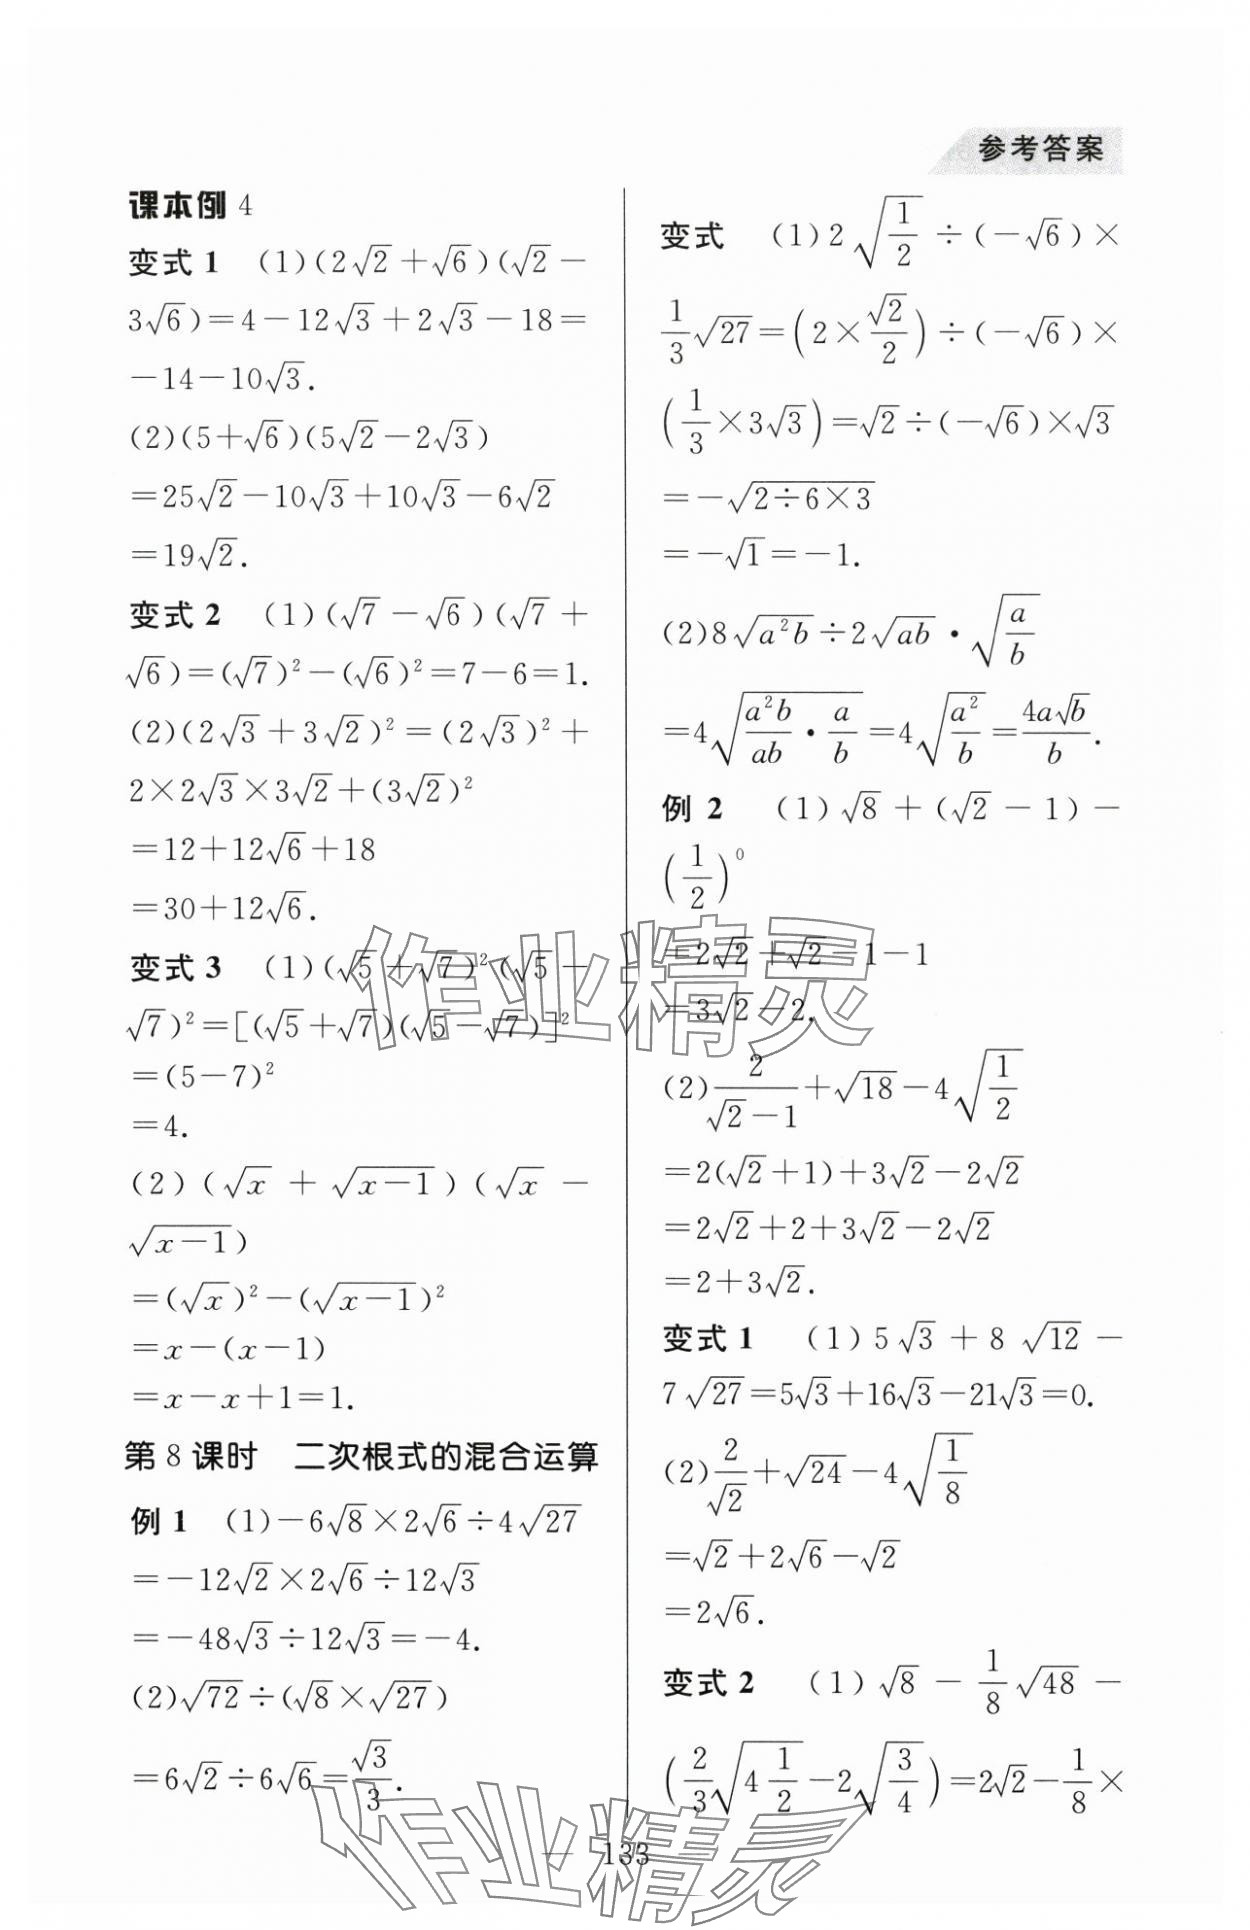 参考答案
课本例 4
变式 1 (1)(2√2+√6)(√2-
3√6)=4-12√3+2√3-18=
-14-10√3.
(2)(5+√6)(5√2-2√3)
=25√2-10√3+10√3-6√2
=19√2.
变式 2 (1)(√7-√6)(√7+
√6)=(√7)²-(√6)²=7-6=1.
(2)(2√3+3√2)²=(2√3)²+
2×2√3×3√2+(3√2)²
=12+12√6+18
=30+12√6.
变式 3 (1)(√5+√7)²(√5-
√7)²=[(√5+√7)(√5-√7)]²
=(5-7)²
=4.
(2)(√x+√(x-1))(√x-
√(x-1))
=(√x)²-(√(x-1))²
=x-(x-1)
=x-x+1=1.
第 8 课时 二次根式的混合运算
例 1 (1)-6√8×2√6÷4√27
=-12√2×2√6÷12√3
=-48√3÷12√3=-4.
(2)√72÷(√8×√27)
=6√2÷6√6=√3/3.
变式 (1)2√(1/2)÷(-√6)×
1/3√27=(2×√2/2)÷(-√6)×
(1/3×3√3)=√2÷(-√6)×√3
=-√(2÷6×3)
=-√1=-1.
(2)8√(a²b)÷2√(ab)·√(a/b)
=4√(a²b/ab·a/b)=4√(a²/b)=4a√b/b.
例 2 (1)√8+(√2-1)-
(1/2)⁰
=2√2+√2-1-1
=3√2-2.
(2)2/(√2-1)+√18-4√(1/2)
=2(√2+1)+3√2-2√2
=2√2+2+3√2-2√2
=2+3√2.
变式 1 (1)5√3+8√12-
7√27=5√3+16√3-21√3=0.
(2)2/√2+√24-4√(1/8)
=√2+2√6-√2
=2√6.
变式 2 (1)√8-1/8√48-
(2/3√(4 1/2)-2√(3/4))=2√2-1/8×
133
作业精灵
作业精灵